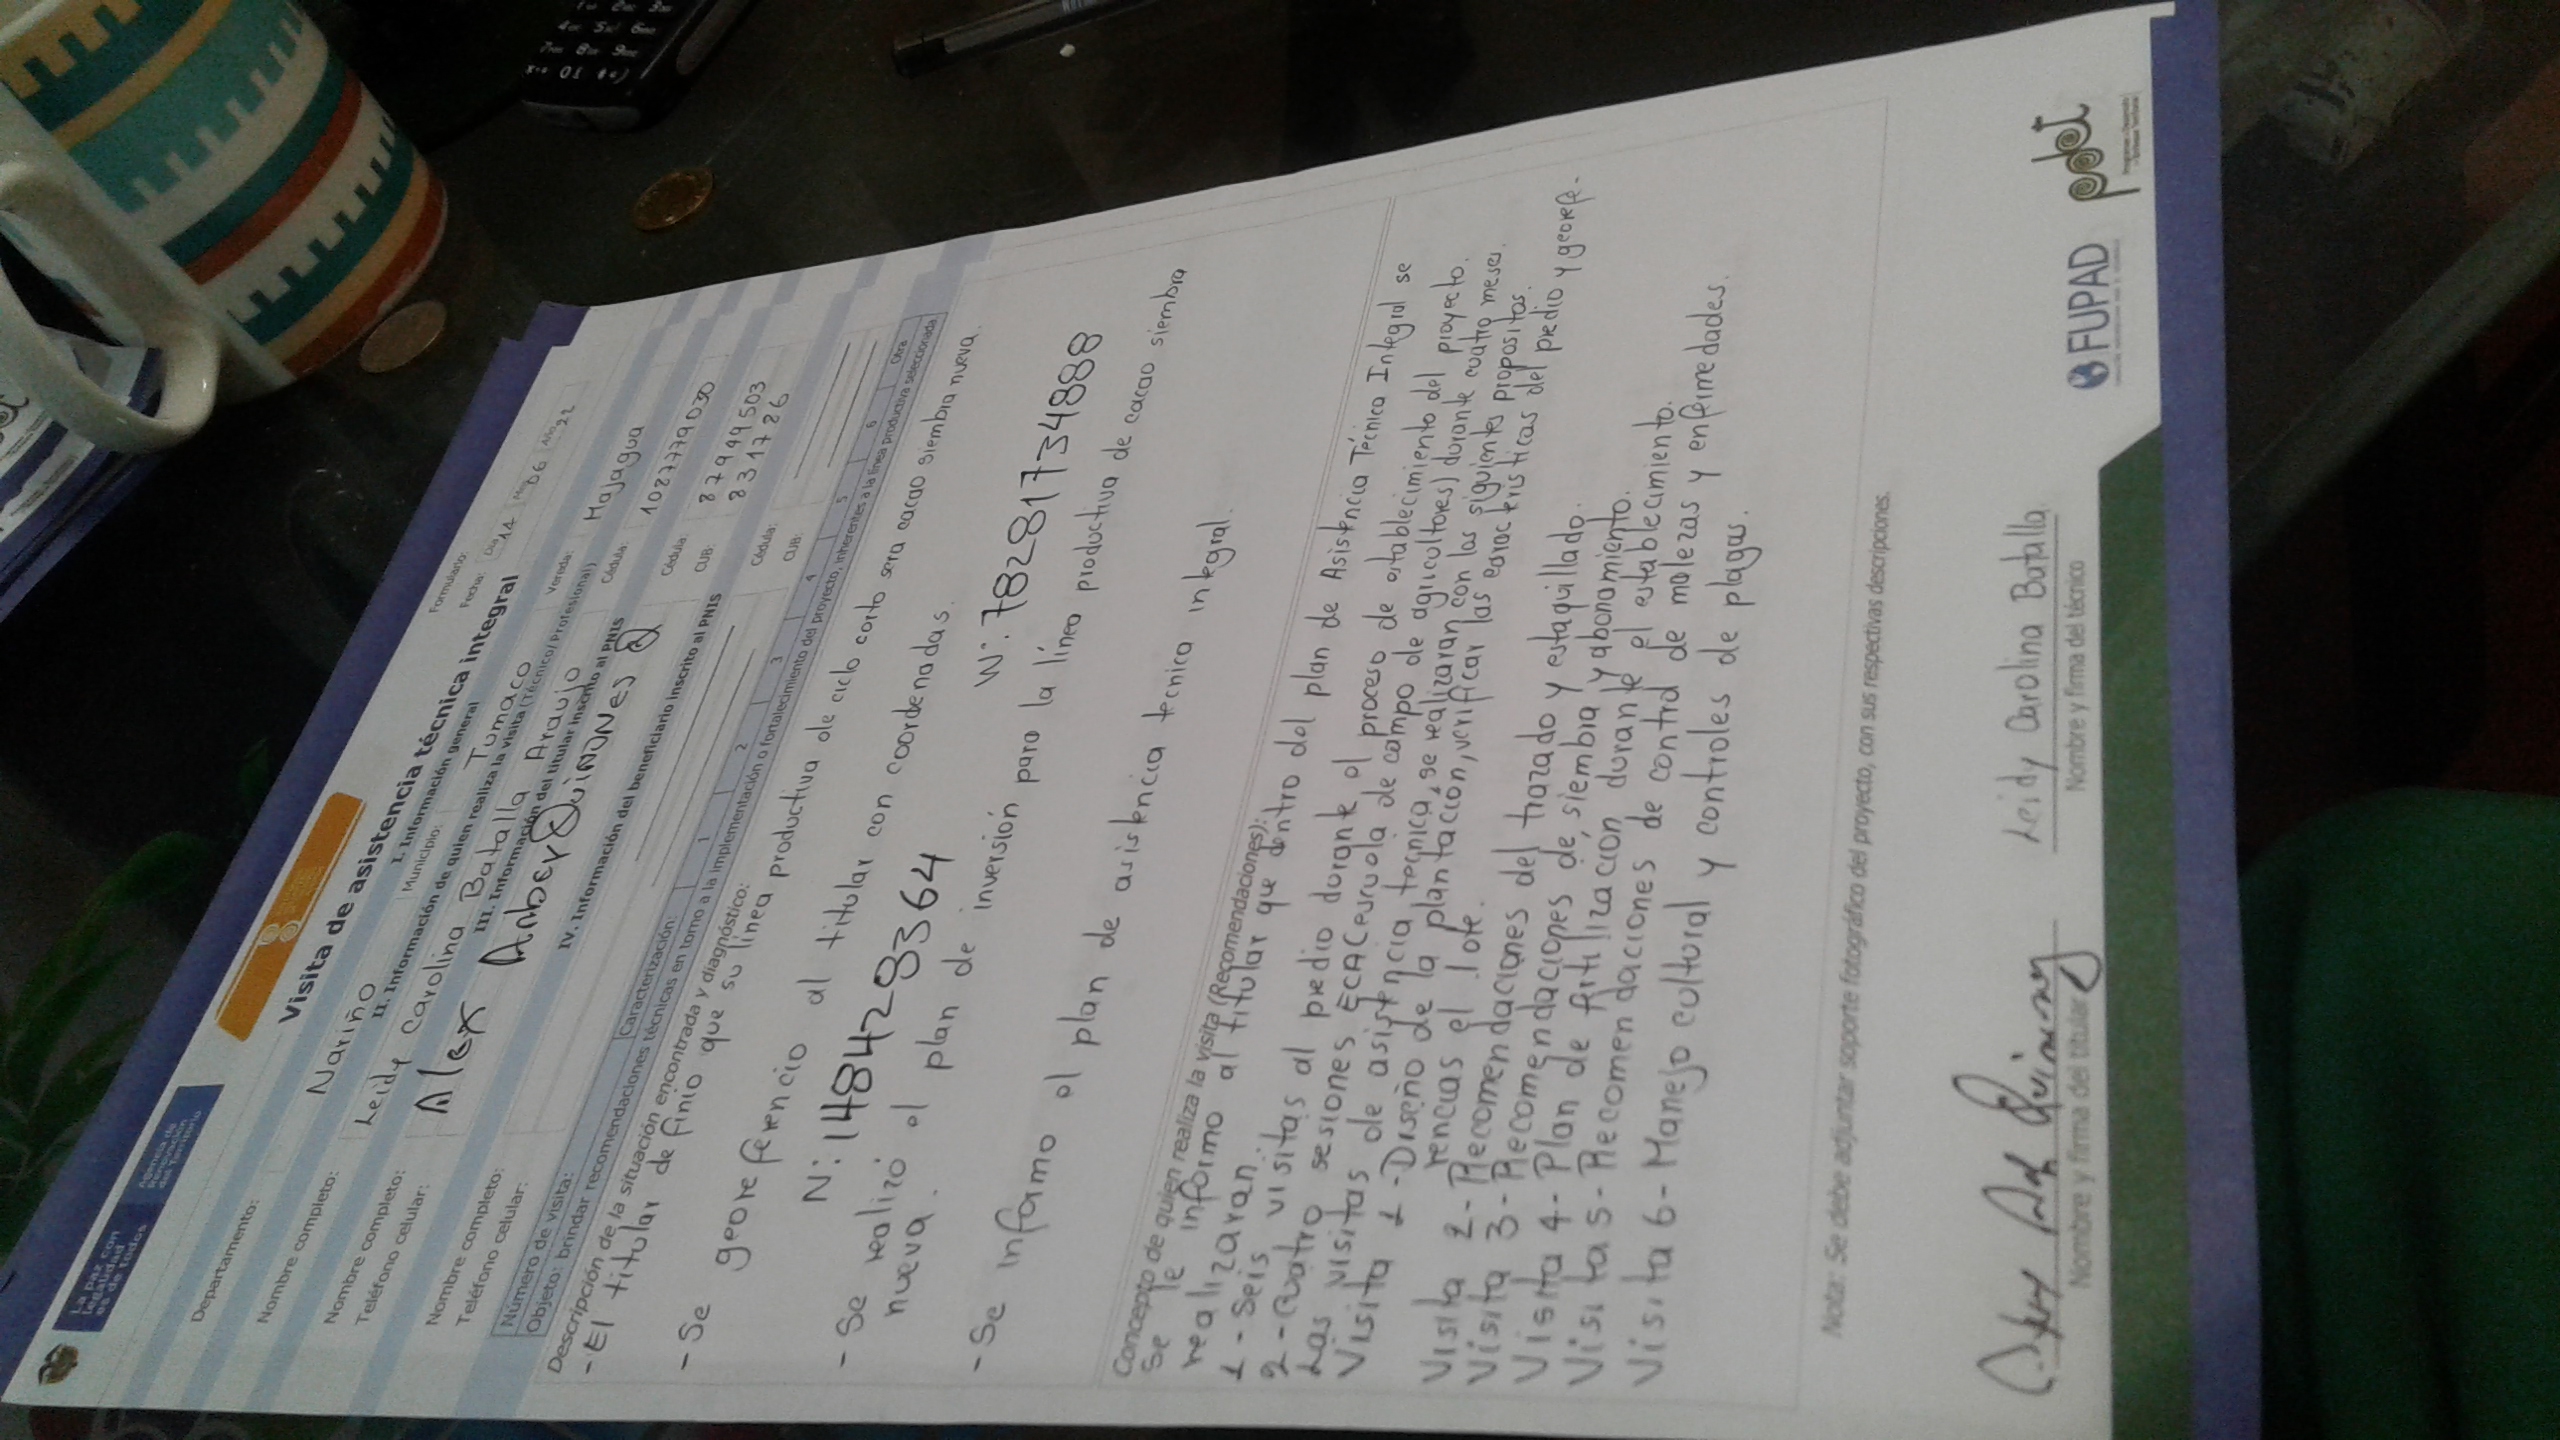 La paz con legalidad es de todos
Agencia de Renovación del Territorio
Visita de asistencia técnica integral
Formulario:
Fecha: Día 14 Mes 06 Año 22
I. Información general
Departamento: Nariño Municipio: Tumaco Vereda: Majagua
II. Información de quien realiza la visita (Técnico/Profesional)
Nombre completo: Leidy Carolina Batalla Araujo Cédula: 1087779030
III. Información del titular inscrito al PNIS
Nombre completo: Alex Anber Quiñones Q Cédula: 87949503
Teléfono celular: CUB: 831786
IV. Información del beneficiario inscrito al PNIS
Nombre completo: Cédula:
Teléfono celular: CUB:
Número de visita: Caracterización: 1 2 3 4 5 6 Otra
Objeto: brindar recomendaciones técnicas en torno a la implementación o fortalecimiento del proyecto, inherentes a la línea productiva seleccionada
Descripción de la situación encontrada y diagnóstico:
- El titular definio que su línea productiva de ciclo corto sera cacao siembra nueva.
- Se georeferencio al titular con coordenadas.
N: 1484283364 W: 78281734888
- Se realizó el plan de inversión para la línea productiva de cacao siembra
nueva.
- Se informo el plan de asistencia tecnica integral.
Concepto de quien realiza la visita (Recomendaciones):
Se le informo al titular que dentro del plan de Asistencia Técnica Integral se
realizaran:
1 - Seis visitas al predio durante el proceso de establecimiento del proyecto.
2 - Cuatro sesiones ECA (escuela de campo de agricultores) durante cuatro meses.
Las visitas de asistencia tecnica, se realizaran con los siguientes propositos.
Visita 1 - Diseño de la plantacion, verificar las caracteristicas del predio y georefe-
rencias el lote.
Visita 2 - Recomendaciones del trazado y estaquillado.
Visita 3 - Recomendaciones de siembra y abonamiento.
Visita 4 - Plan de fertilizacion durante el establecimiento.
Visita 5 - Recomendaciones de control de malezas y enfermedades.
Visita 6 - Manejo cultural y controles de plagas.
Nota: Se debe adjuntar soporte fotográfico del proyecto, con sus respectivas descripciones.
Leidy Carolina Batalla
Nombre y firma del titular Nombre y firma del técnico
FUPAD pdet